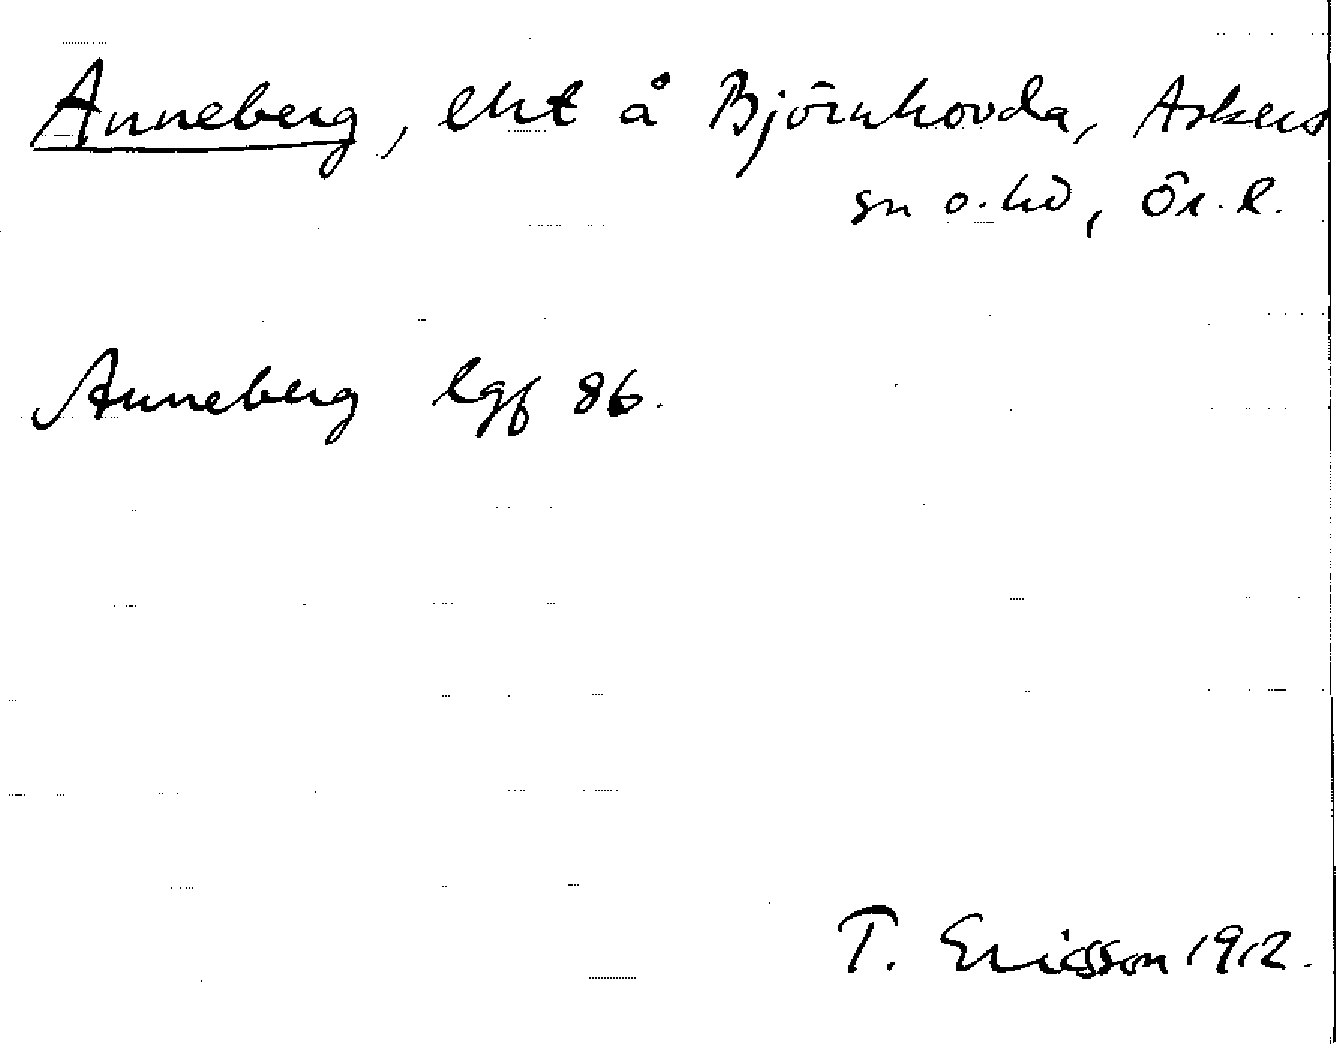 Anneberg, lht å Björnhovda, Askers
sn o. hd, Ör. l.
Anneberg lgf 86.
T. Ericsson 1912.